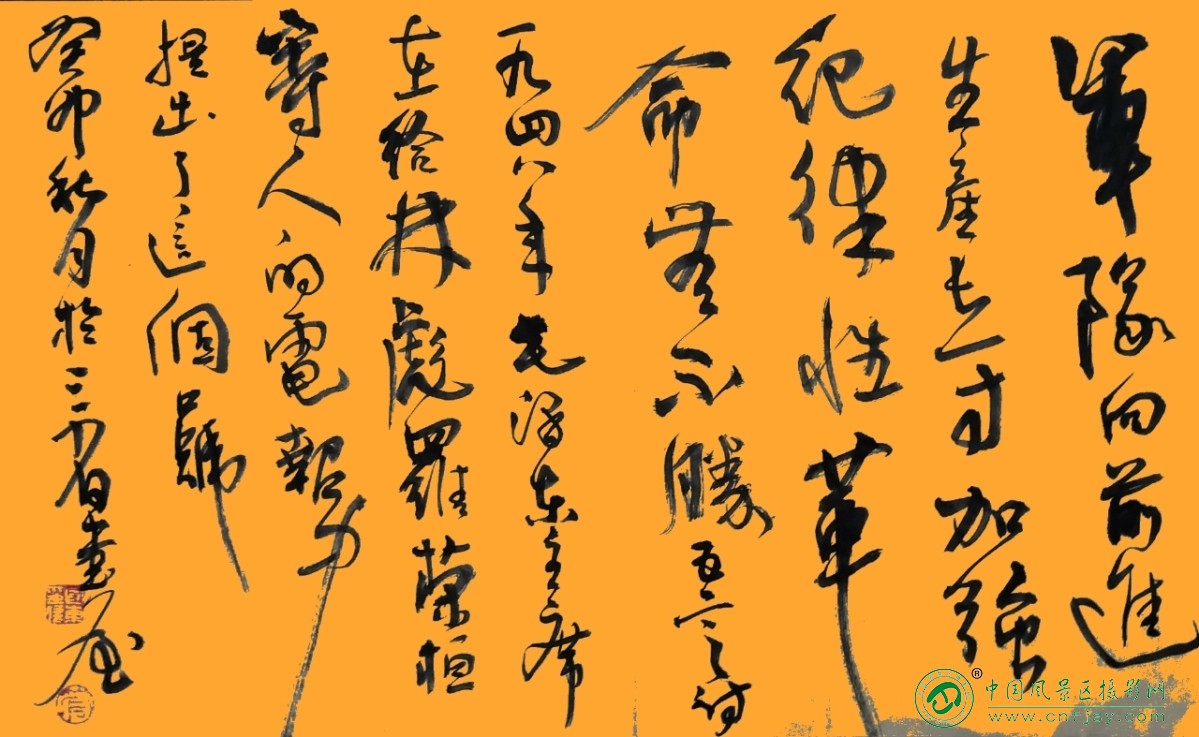 軍隊向前進
生產長一寸加強
紀律性革
命無不勝
一九四八年毛澤東主席
在給林彪羅榮桓
等人的電報中
提出了這個號
癸卯秋月於三書屋
中国风景区摄影网®
www.cnfjay.com